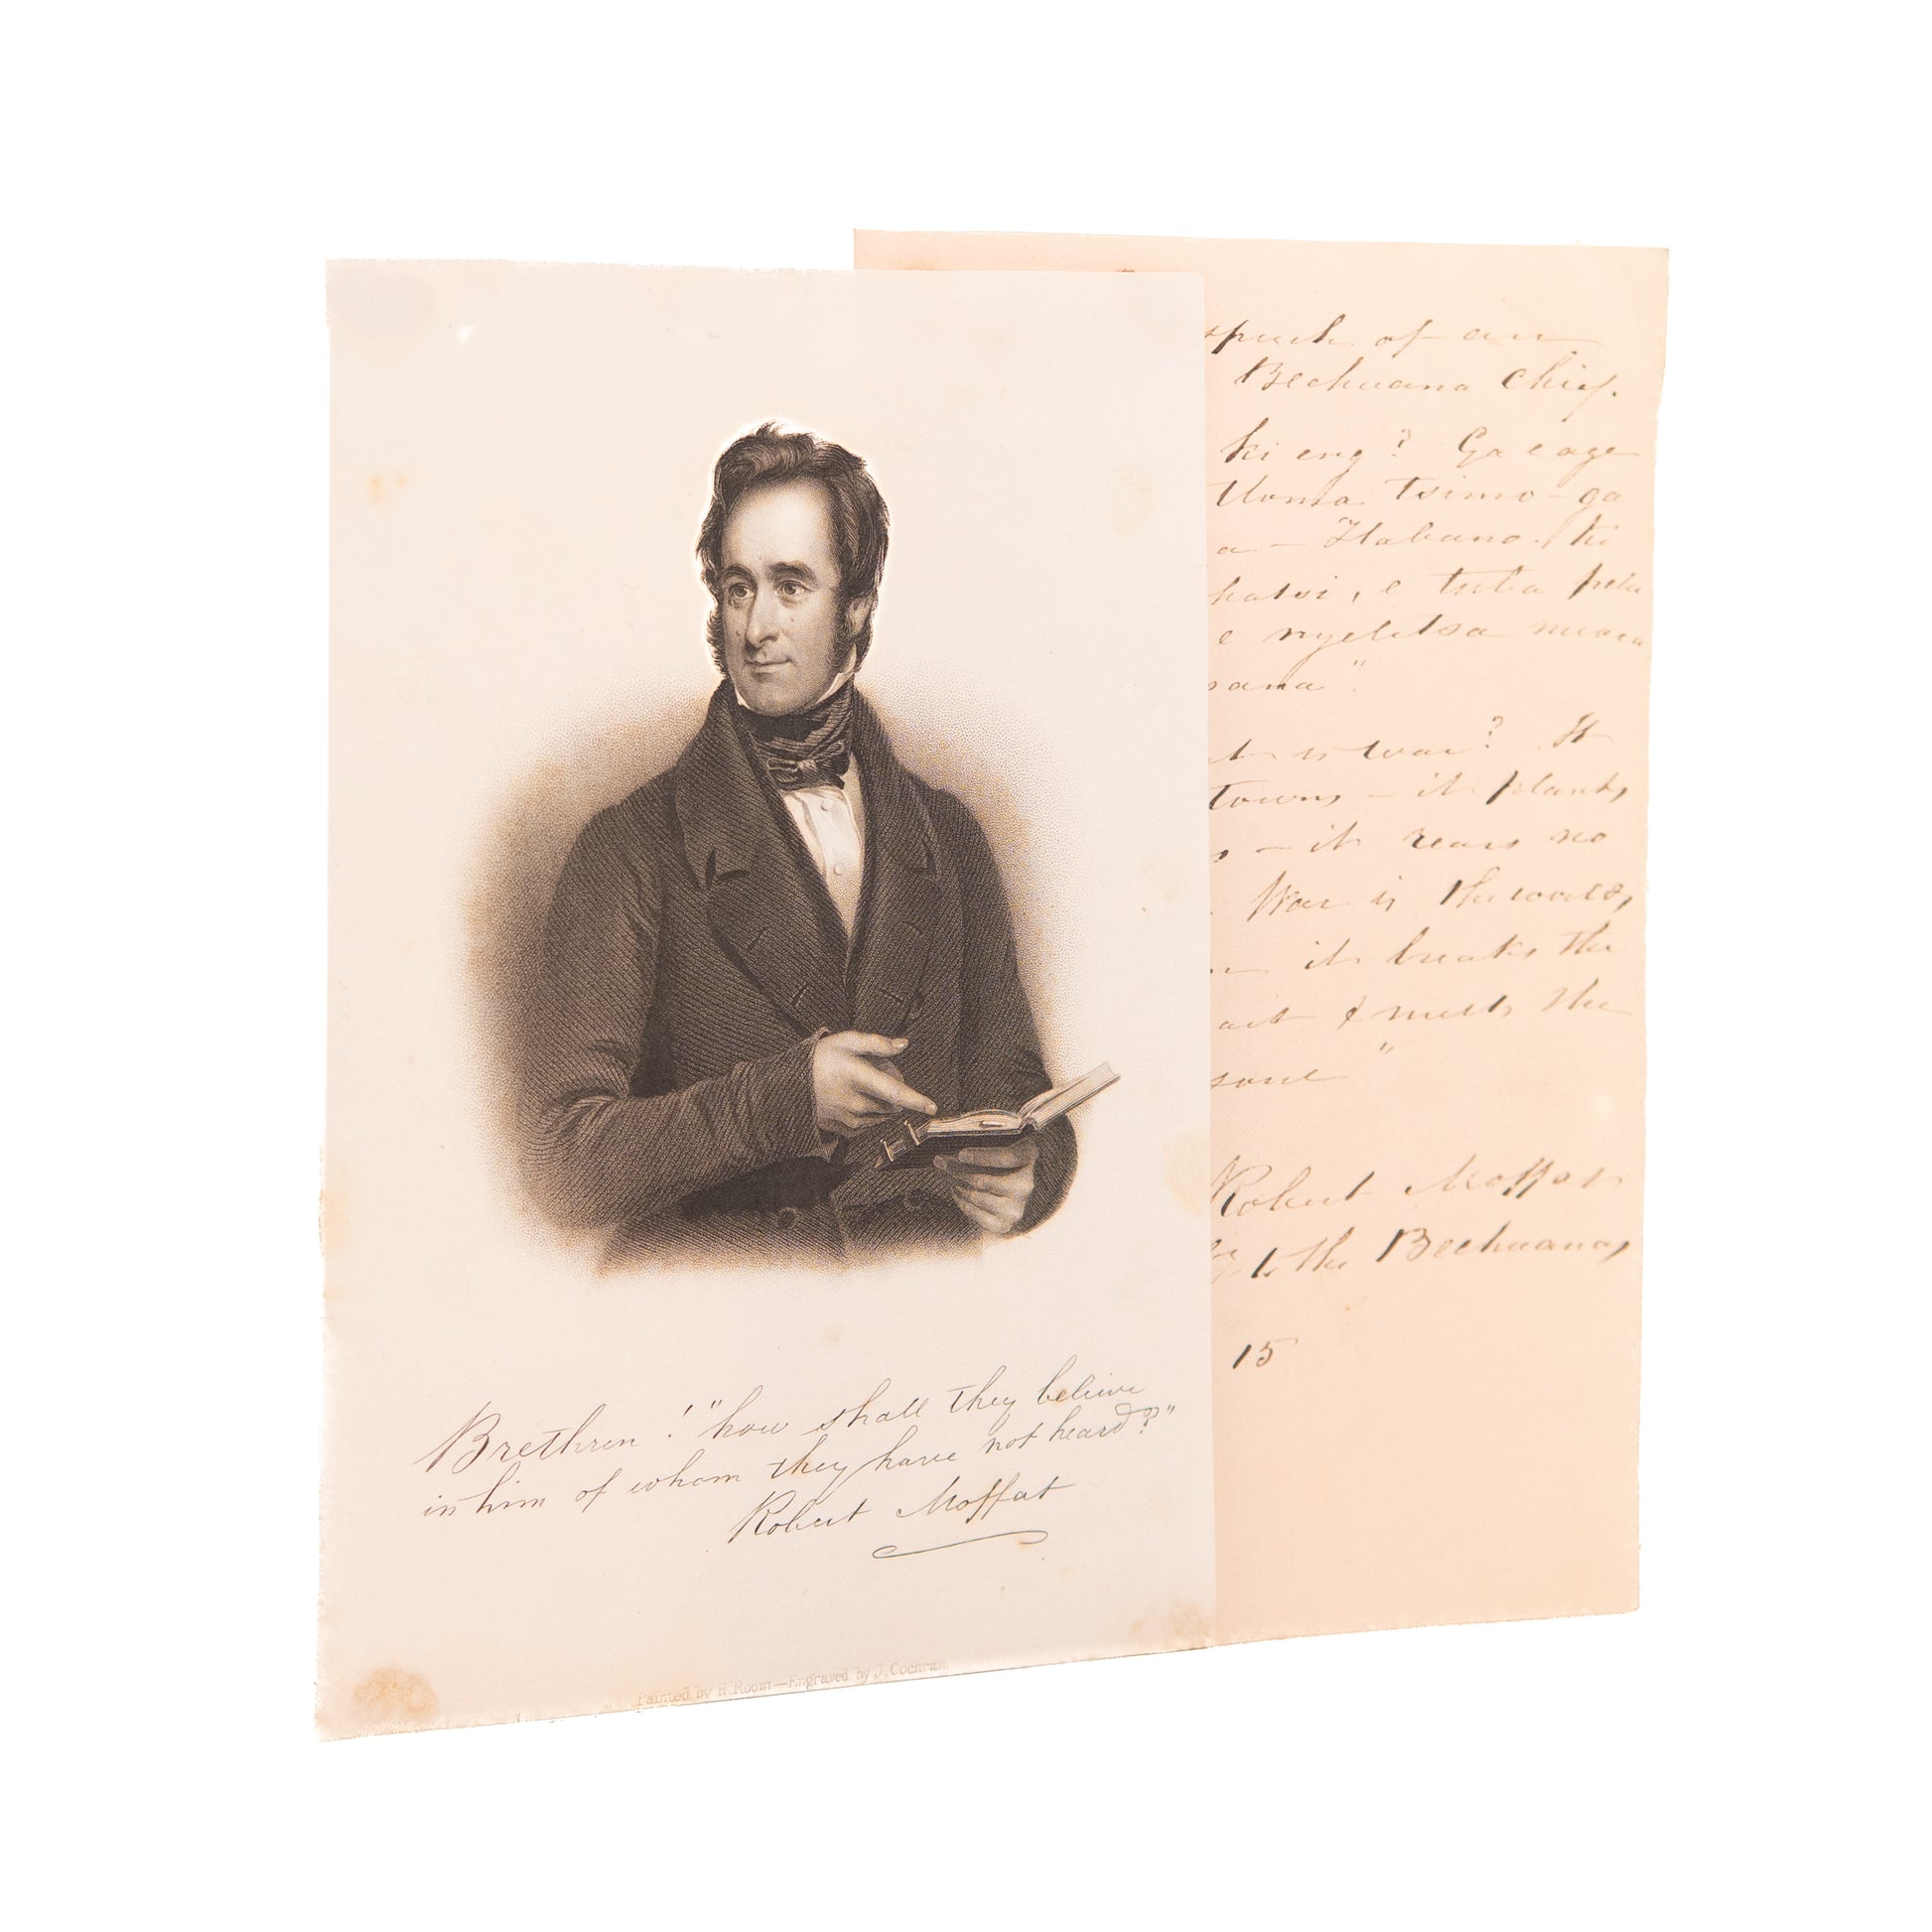 Brethren! "how shall they believe
in him of whom they have not heard?"
Robert Moffat
Painted by H. Room — Engraved by J. Cochran
speech of an
Bechuana Chief.
ki eng? Ga e age
tsimo - ga
a —
e tuba pelu
e nyeletsa
"
is war? It
towns – it plants
– it rears no
War is the worlds,
it breaks the
& melts the
soul "
Robert Moffat
to the Bechuanas
15